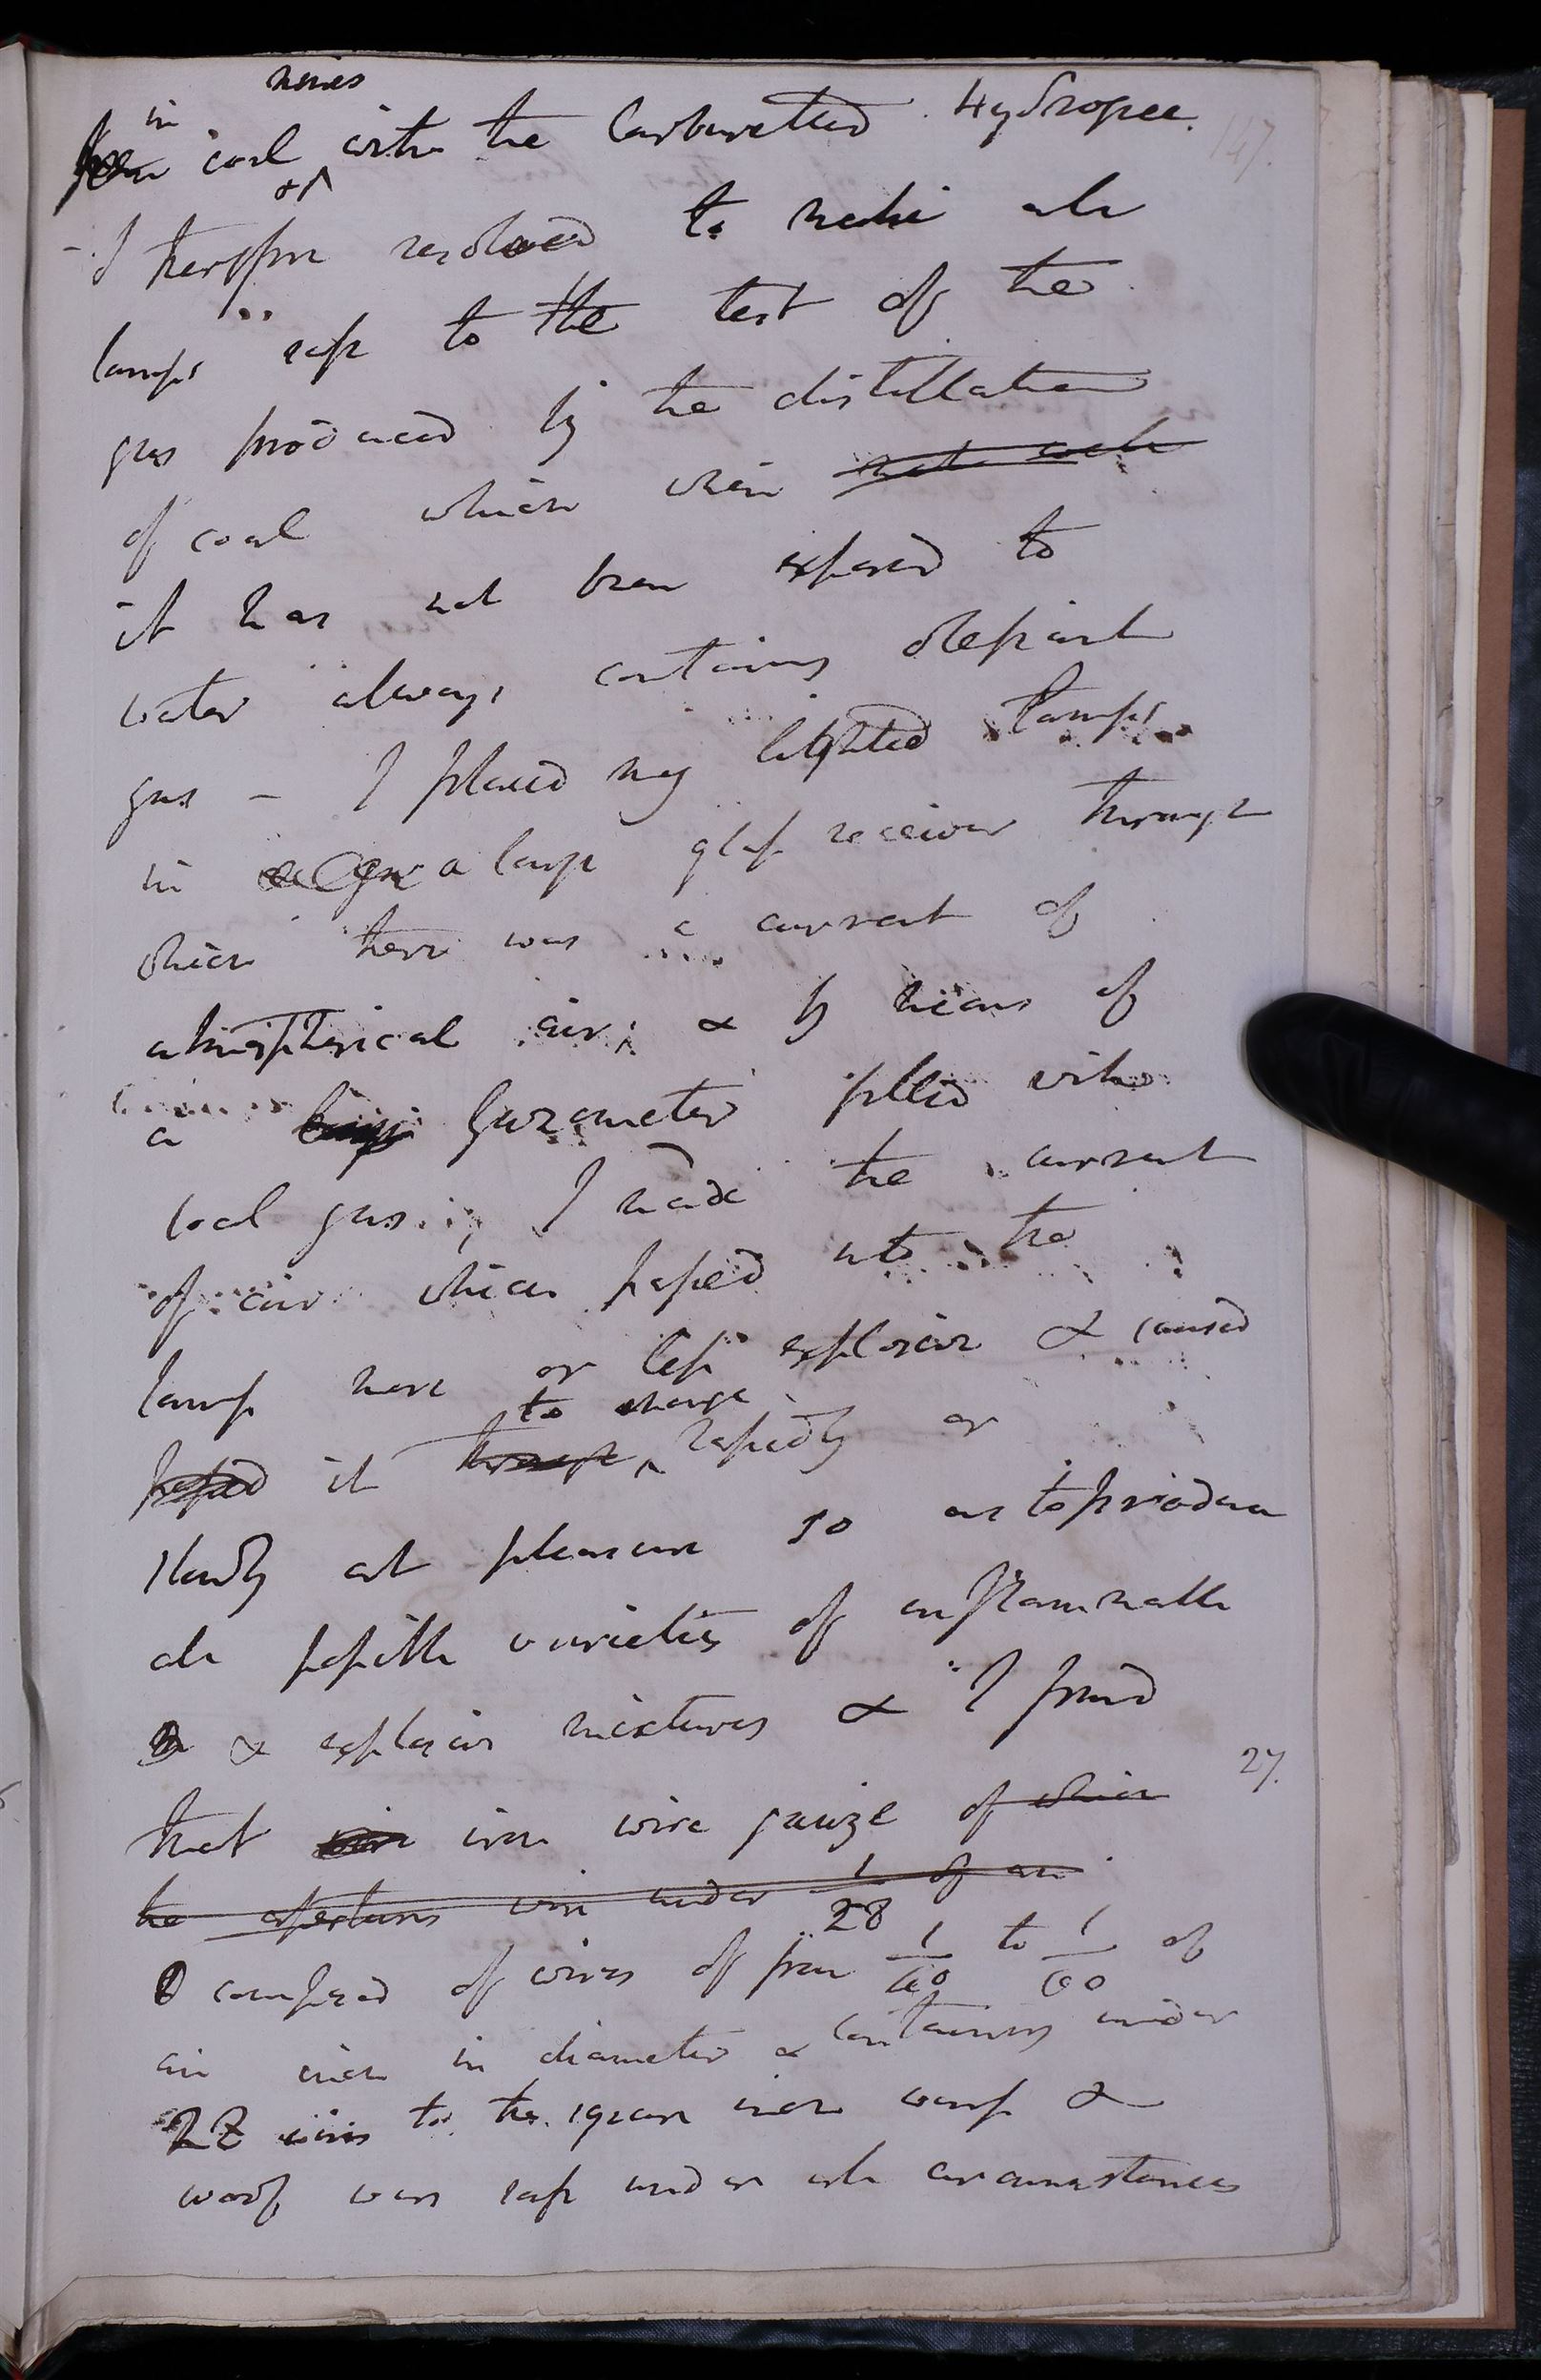 mines
in
from coal with the Carburetted Hydrogene.
or
- I therefore resolved to make all
lamps safe to the test of the
gas produced by the distillation
of coal which when
it has not been exposed to
water always contains olefiant
gas - I placed my lighted lamps
in a large glass receiver through
which there was a current of
atmospherical air; & by means of
a large Gazometer filled with
coal gas; I made the current
of air which passed into the
lamp more or less explosive & caused
to change
passed it through rapidly or
slowly at pleasure so as to produce
all possible varieties of inflammable
& explosive mixtures & I found
27.
that wire iron wire gauze of which
the apertures were under 1/28 of an
composed of wires of from 1/40 to 1/60 of
an inch in diameter & containing under
28 wires to the square inch warp &
woof was safe under all circumstances
147.